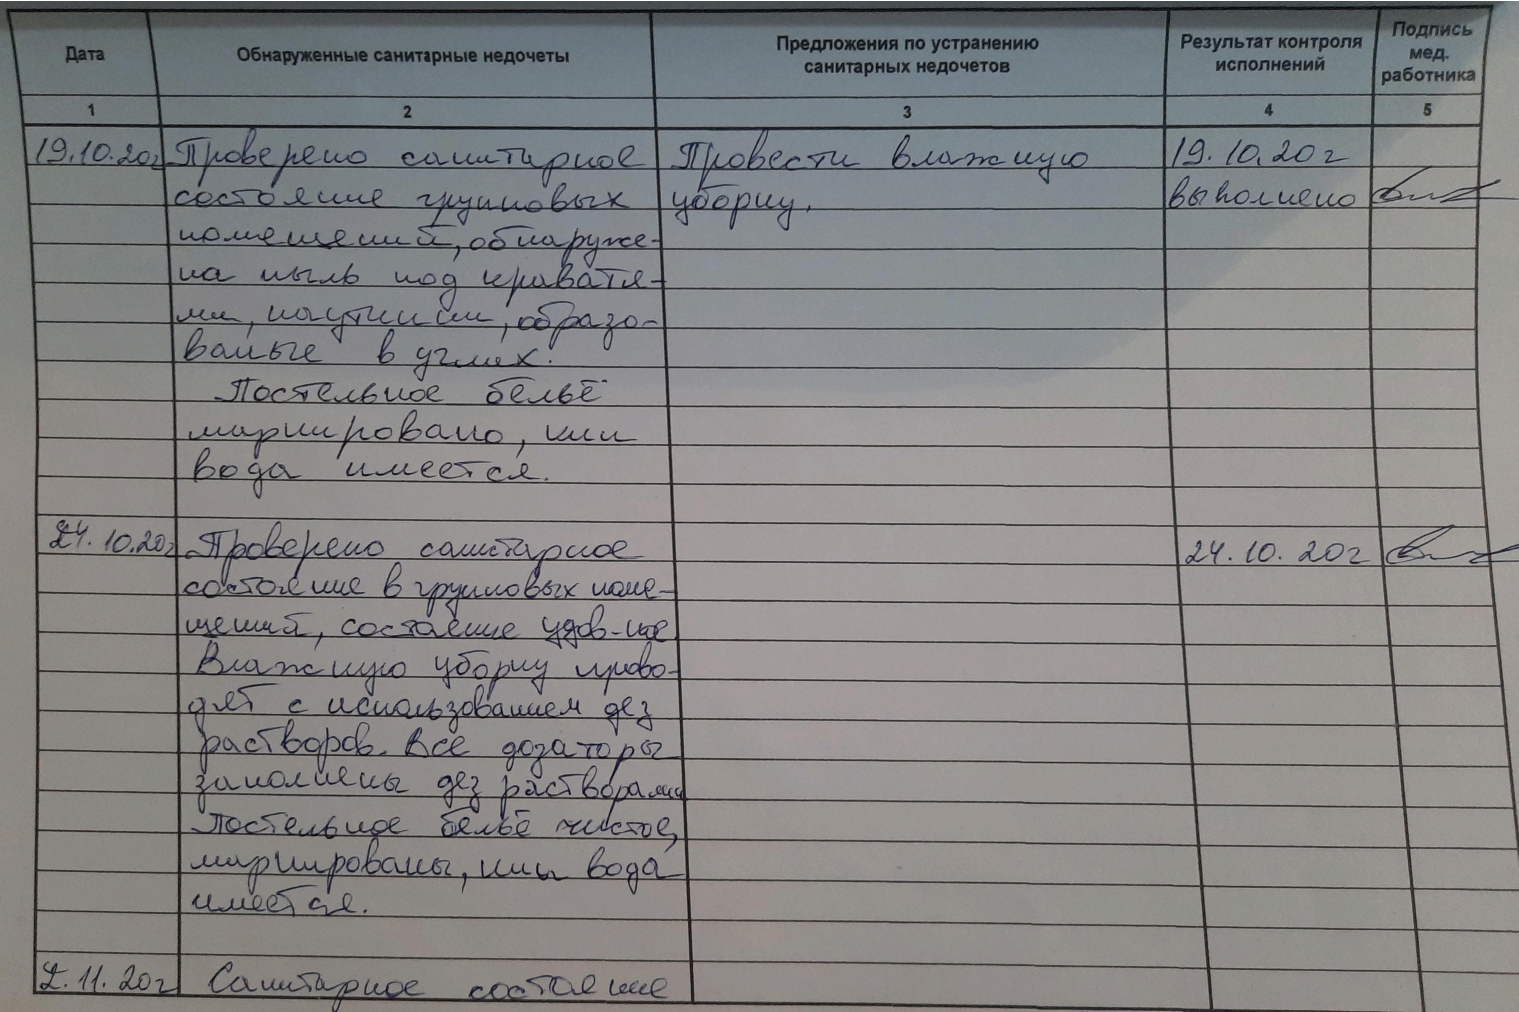 Дата
Обнаруженные санитарные недочеты
Предложения по устранению
санитарных недочетов
Результат контроля
исполнений
Подпись
мед.
работника
1
2
3
4
5
19.10.20г Проверено санитарное Провести влажную 19.10.20г
состояние групповых уборку. выполнено
помещений, обнаруже-
на пыль под кроватя-
ми, паутины, образо-
ваные в углах.
Постельное бельё
маркировано, кип
вода имеется.
24.10.20г Проверено санитарное 24.10.20г
состояние в групповых поме-
щений, состояние удов-ное
Влажную уборку прово-
дят с использованием дез
растворов. Все дозаторы
заполнены дез растворами
Постельное бельё чистое,
маркированы, кип вода
имеется.
2.11.20г Санитарное состояние